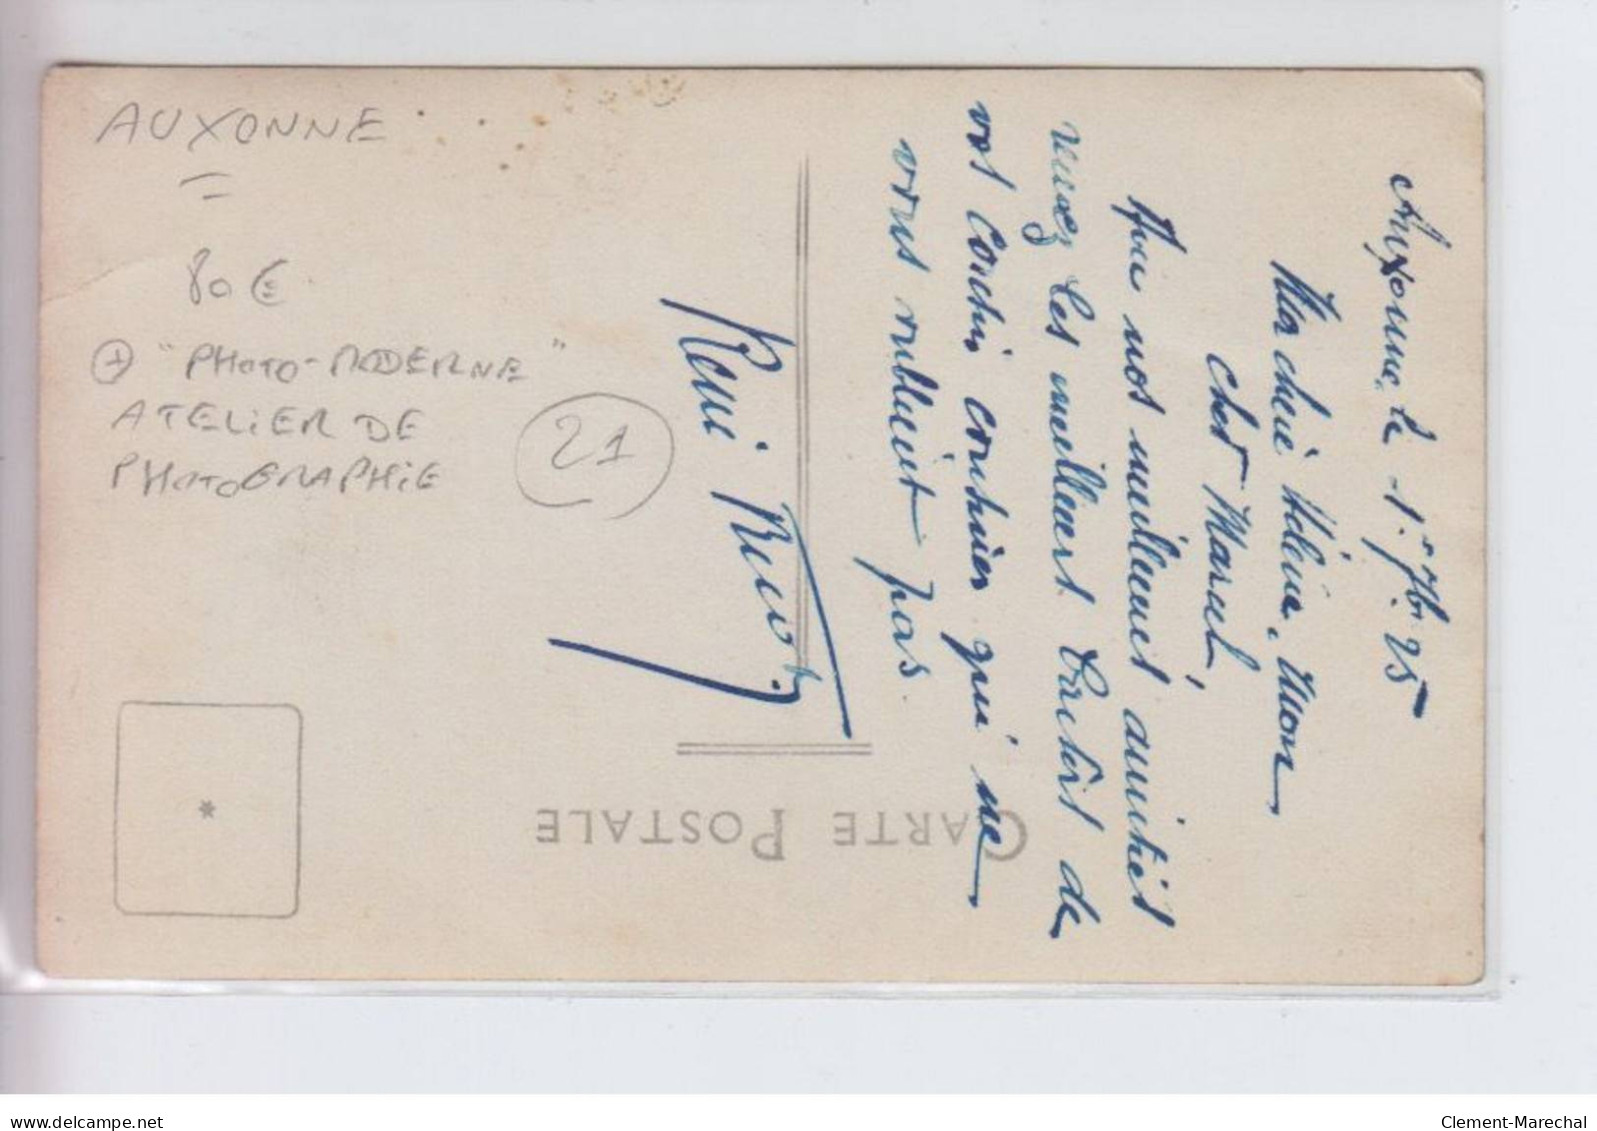 AUXONNE
80 €
+ "PHOTO-MODERNE"
ATELIER DE
PHOTOGRAPHIE
21
CARTE POSTALE
*
Auxonne, le 1er 7bre 25
Ma chère Hélène, Mon
cher Marcel,
Avec nos meilleures amitiés
recevez les meilleurs baisers de
vos cousins qui ne
vous oublient pas.
delcampe.net
Clement-Marechal